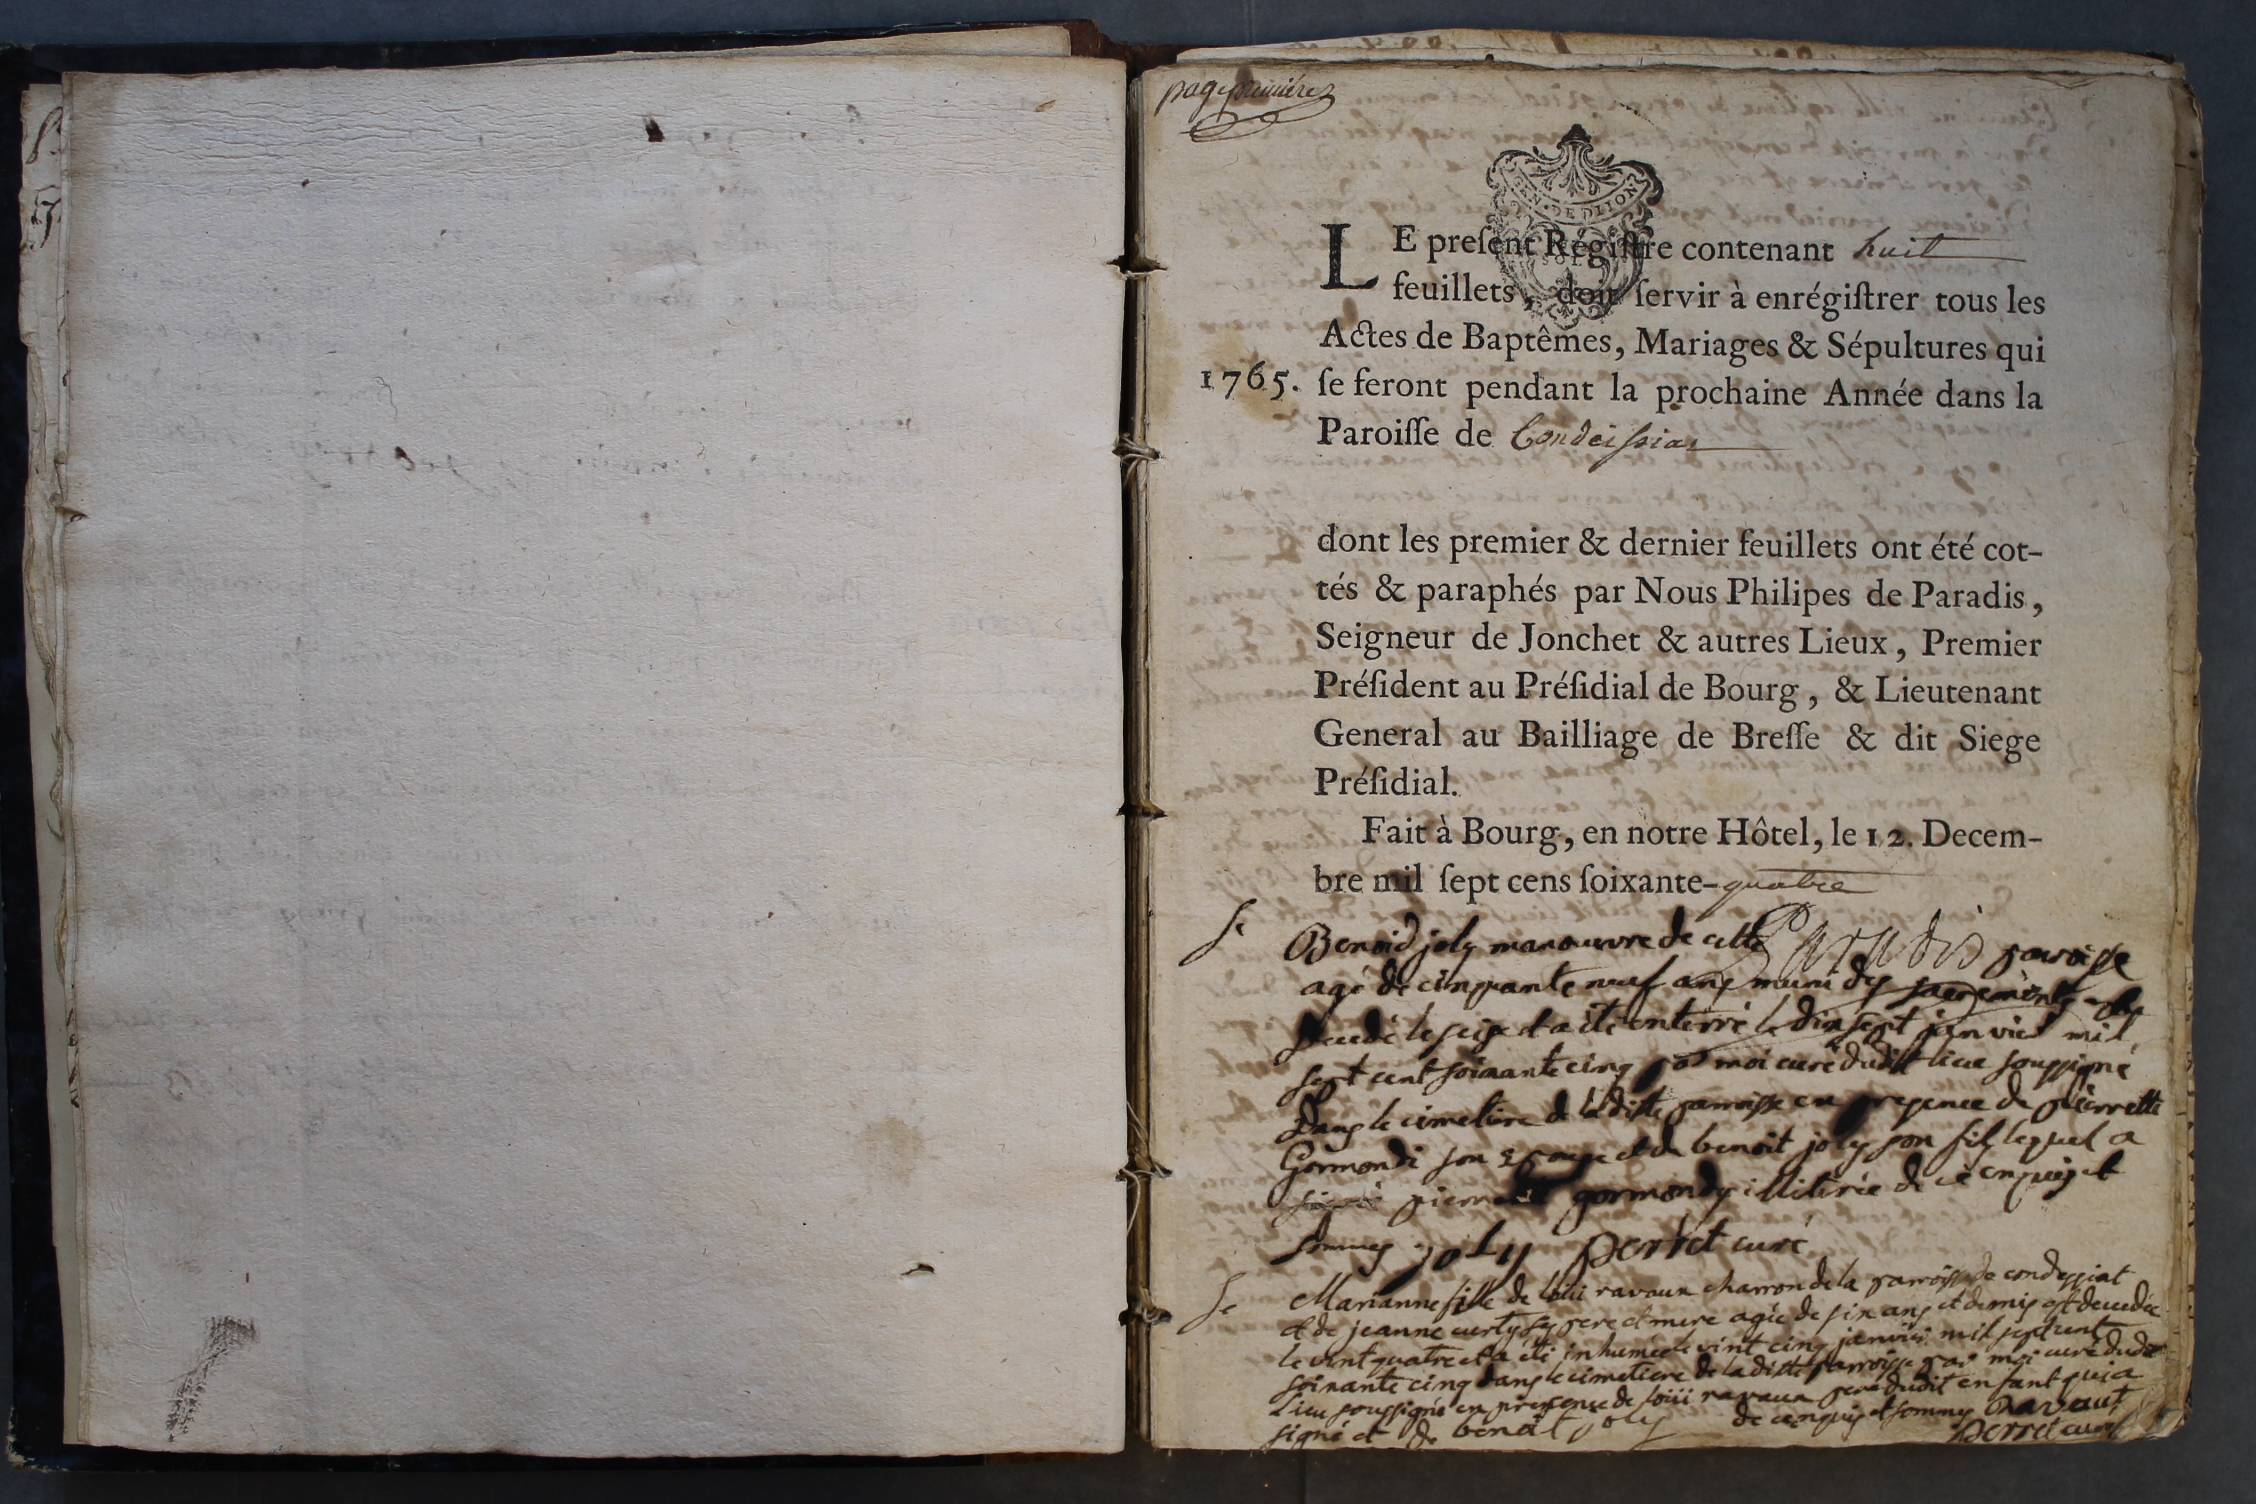 page premiere
GEN. DE DIJON
LE preſent Régiſtre contenant huit
feuillets, doit ſervir à enrégiſtrer tous les
Actes de Baptêmes, Mariages & Sépultures qui
1765. ſe feront pendant la prochaine Année dans la
Paroiſſe de Condeissiat
dont les premier & dernier feuillets ont été cot-
tés & paraphés par Nous Philipes de Paradis,
Seigneur de Jonchet & autres Lieux, Premier
Préſident au Préſidial de Bourg, & Lieutenant
General au Bailliage de Breſſe & dit Siege
Préſidial.
Fait à Bourg, en notre Hôtel, le 12. Decem-
bre mil ſept cens ſoixante-quatre
Paradis
Se Benoid joly manouvre de cette paroisse
agé de cinquante neuf ans muni des sacrements est
decedé le seize et a été enterré le dix sept janvier mil
sept cent soixante cinq par moi curé dudit lieu soussigné
dans le cimetiere de la ditte parroisse en presence de pierrette
Gormondi son epouse et de benoit joly son fils lequel a
signé pierrette gormondy illiterée de ce enquis et
sommes joly perret curé
Se Marianne fille de loüi ravaux charron de la parroisse de condeyssiat
et de jeanne curty ses pere et mere agée de six ans et demis est decedée
le vint quatre et a été inhumée le vint cinq janvier mil sept cent
soixante cinq dans le cimetiere de la ditte parroisse par moi curé dudit
lieu soussigné en presence de loüi ravaux pere dudit enfant qui a
signé et de benoît joly de ce enquis et sommes Ravaut
perret curé